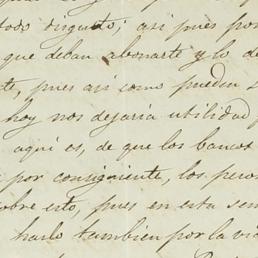 todo disgusto; asi pues por
que deban abonarte y lo de
te, pues asi como pueden s
hoy nos dejaría utilidad
aqui es, de que los bancos
por consiguiente, los pesos
sobre esto, pues en esta sem
harlo tambien por la via